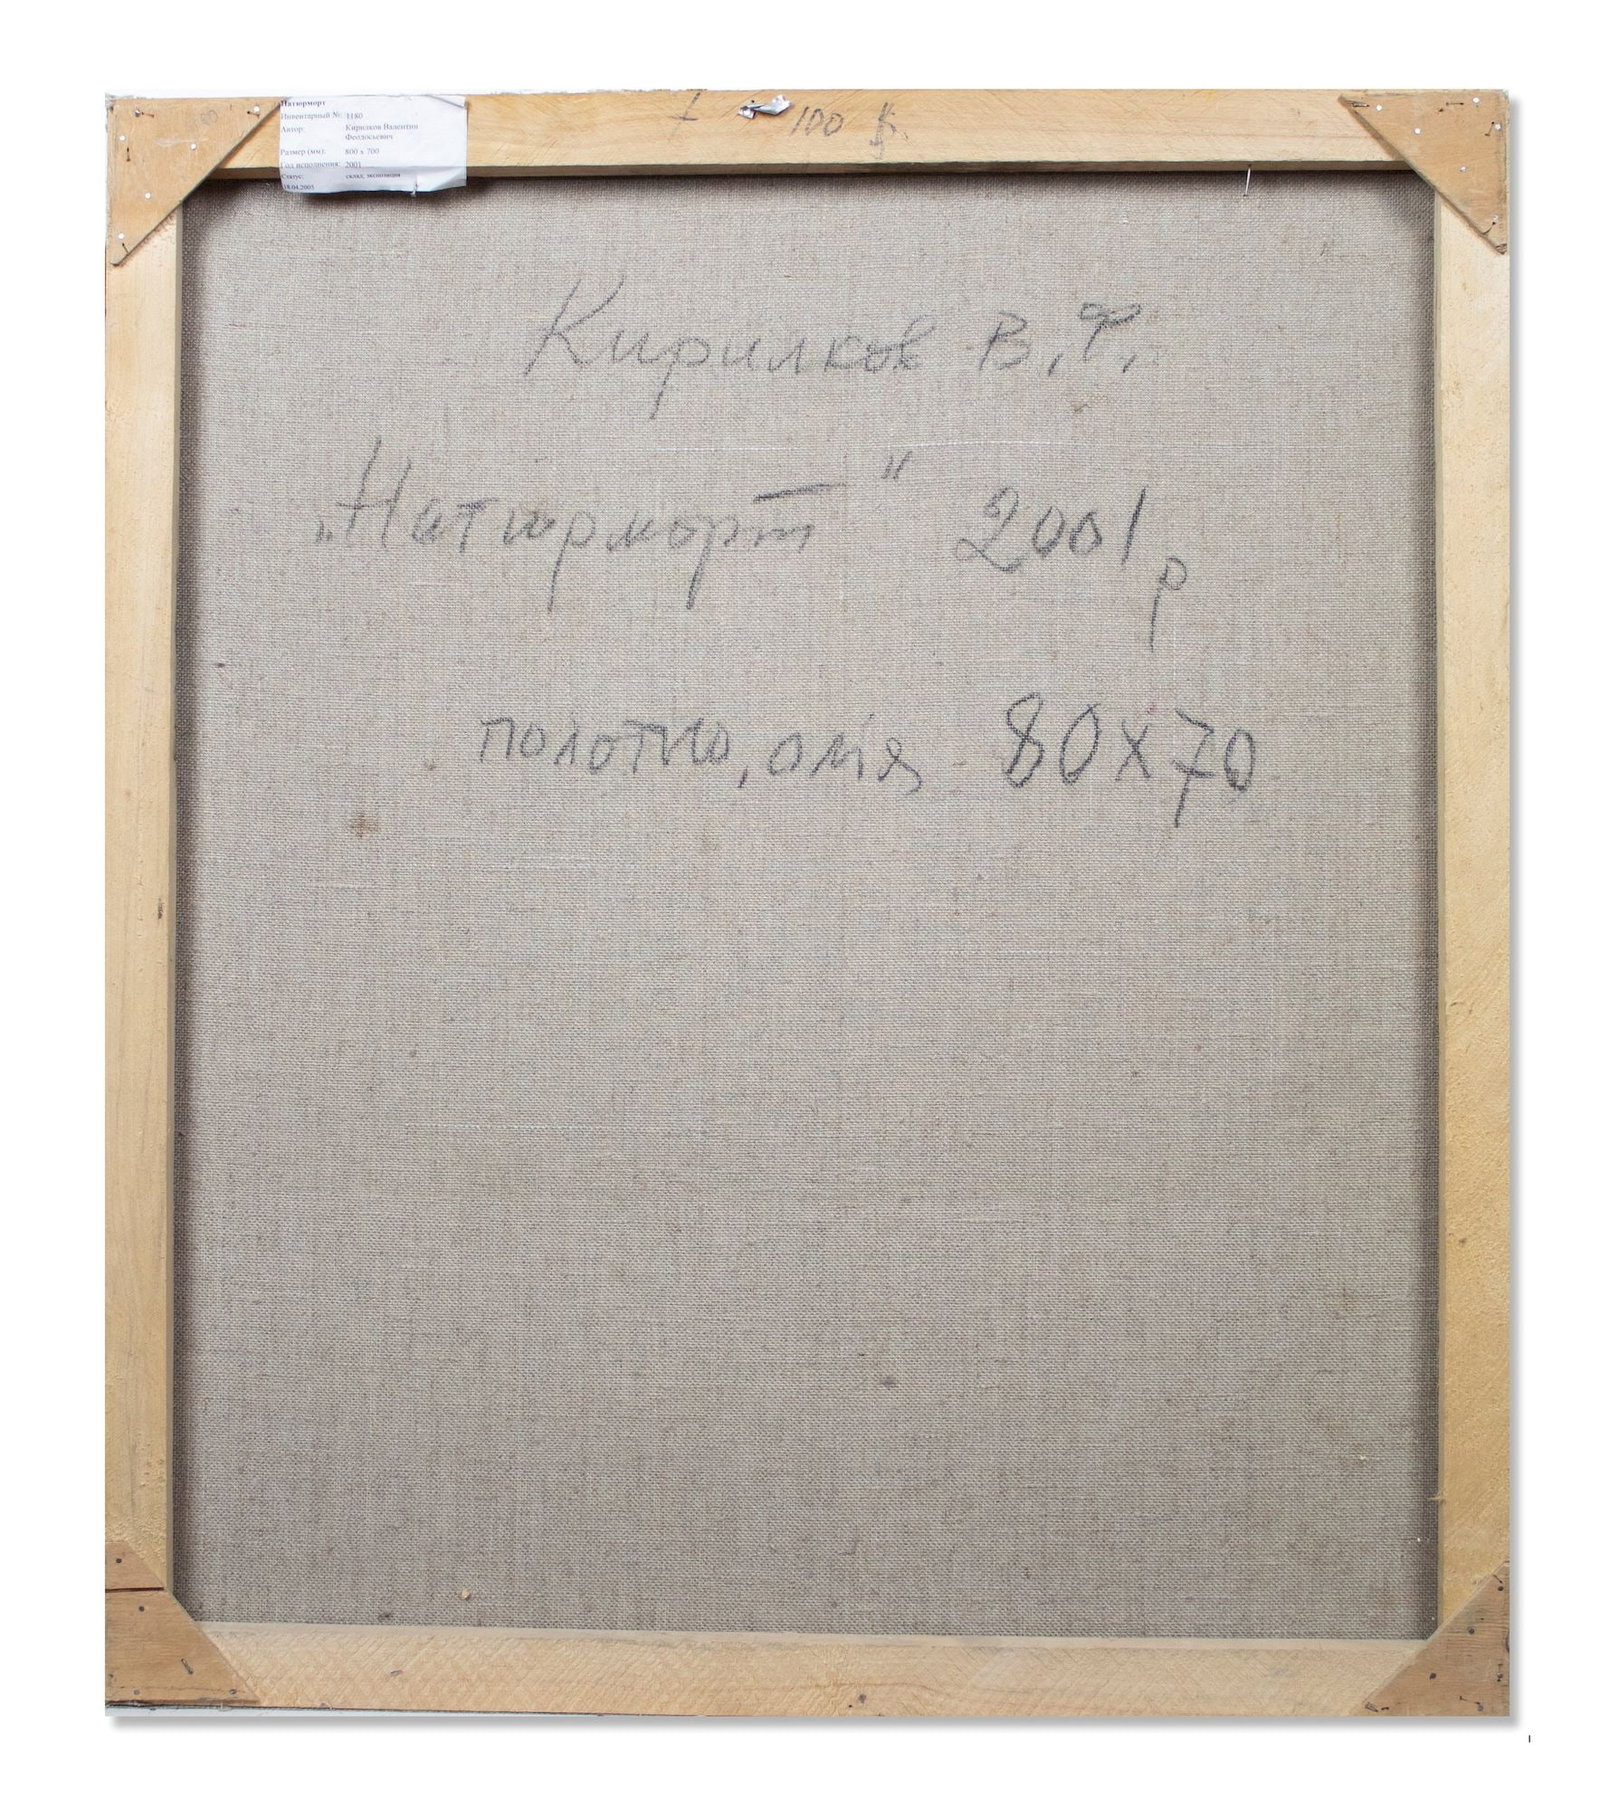 Натюрморт
Инвентарный №: 1180
Автор: Кирилков Валентин
Феодосьевич
Размер (мм): 800 x 700
Год исполнения: 2001
Статус: склад, экспозиция
18.04.2005
100
Кирилков В.Ф.
„Натюрморт" 2001р
полотно, олія - 80х70